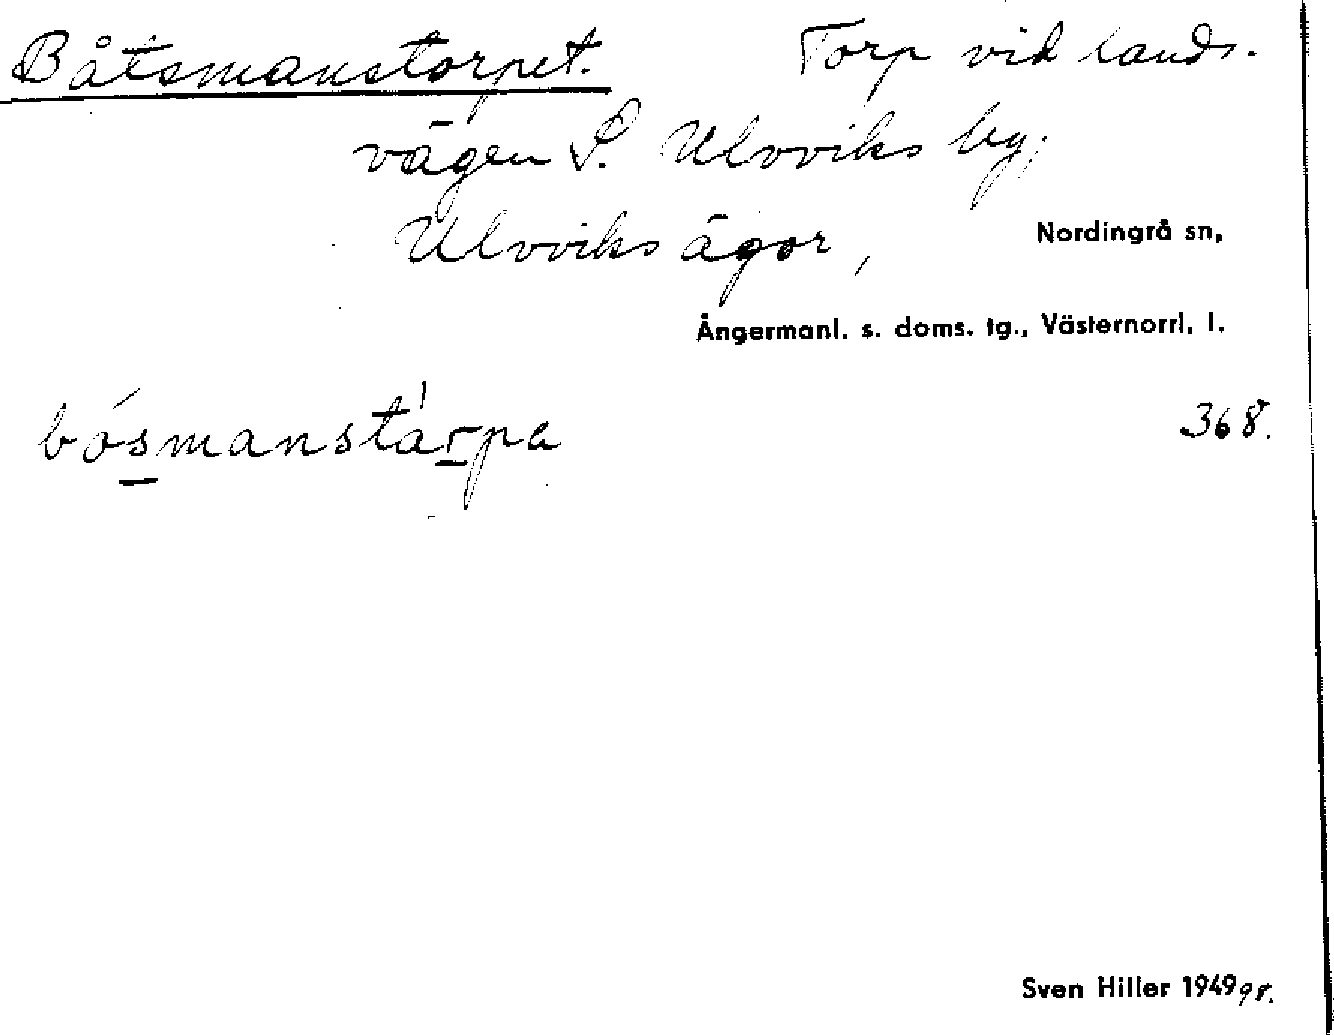 Båtsmanstorpet. Torp vid lands-
vägen S. Ulvviks by;
Ulvviks ägor, Nordingrå sn,
Ångermanl. s. doms. tg., Västernorrl. l.
bósmanstárpa 368.
Sven Hiller 1949 gr.